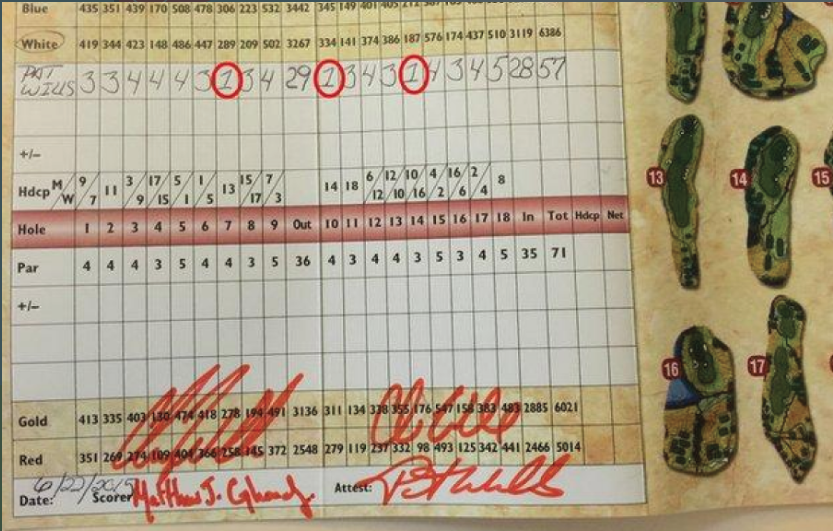 Blue 435 351 439 170 508 478 306 223 532 3442 345 149 401 405
White 419 344 423 148 486 447 289 209 502 3267 334 141 374 386 187 576 174 437 510 3119 6386
PAT WILLS 3 3 4 4 4 3 1 3 4 29 1 3 4 3 1 4 3 4 5 28 57
+/-
Hdcp M/W 9/7 11 3/9 17/15 5/1 1/5 13 15/17 7/3 14 18 6/12 12/10 10/16 4/2 16/6 2/4 8
Hole 1 2 3 4 5 6 7 8 9 Out 10 11 12 13 14 15 16 17 18 In Tot Hdcp Net
Par 4 4 4 3 5 4 4 3 5 36 4 3 4 4 3 5 3 4 5 35 71
+/-
Gold 413 335 403 130 474 418 278 194 491 3136 311 134 338 355 176 547 158 383 483 2885 6021
Red 351 269 274 109 404 366 258 145 372 2548 279 119 237 332 98 493 125 342 441 2466 5014
Date: 6/22/2015 Scorer Matthew J. Attest:
13
14
15
16
17